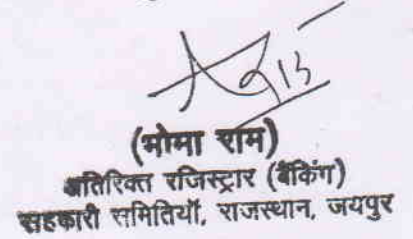 (भोमा राम)
अतिरिक्त रजिस्ट्रार (बैंकिंग)
सहकारी समितियाँ, राजस्थान, जयपुर